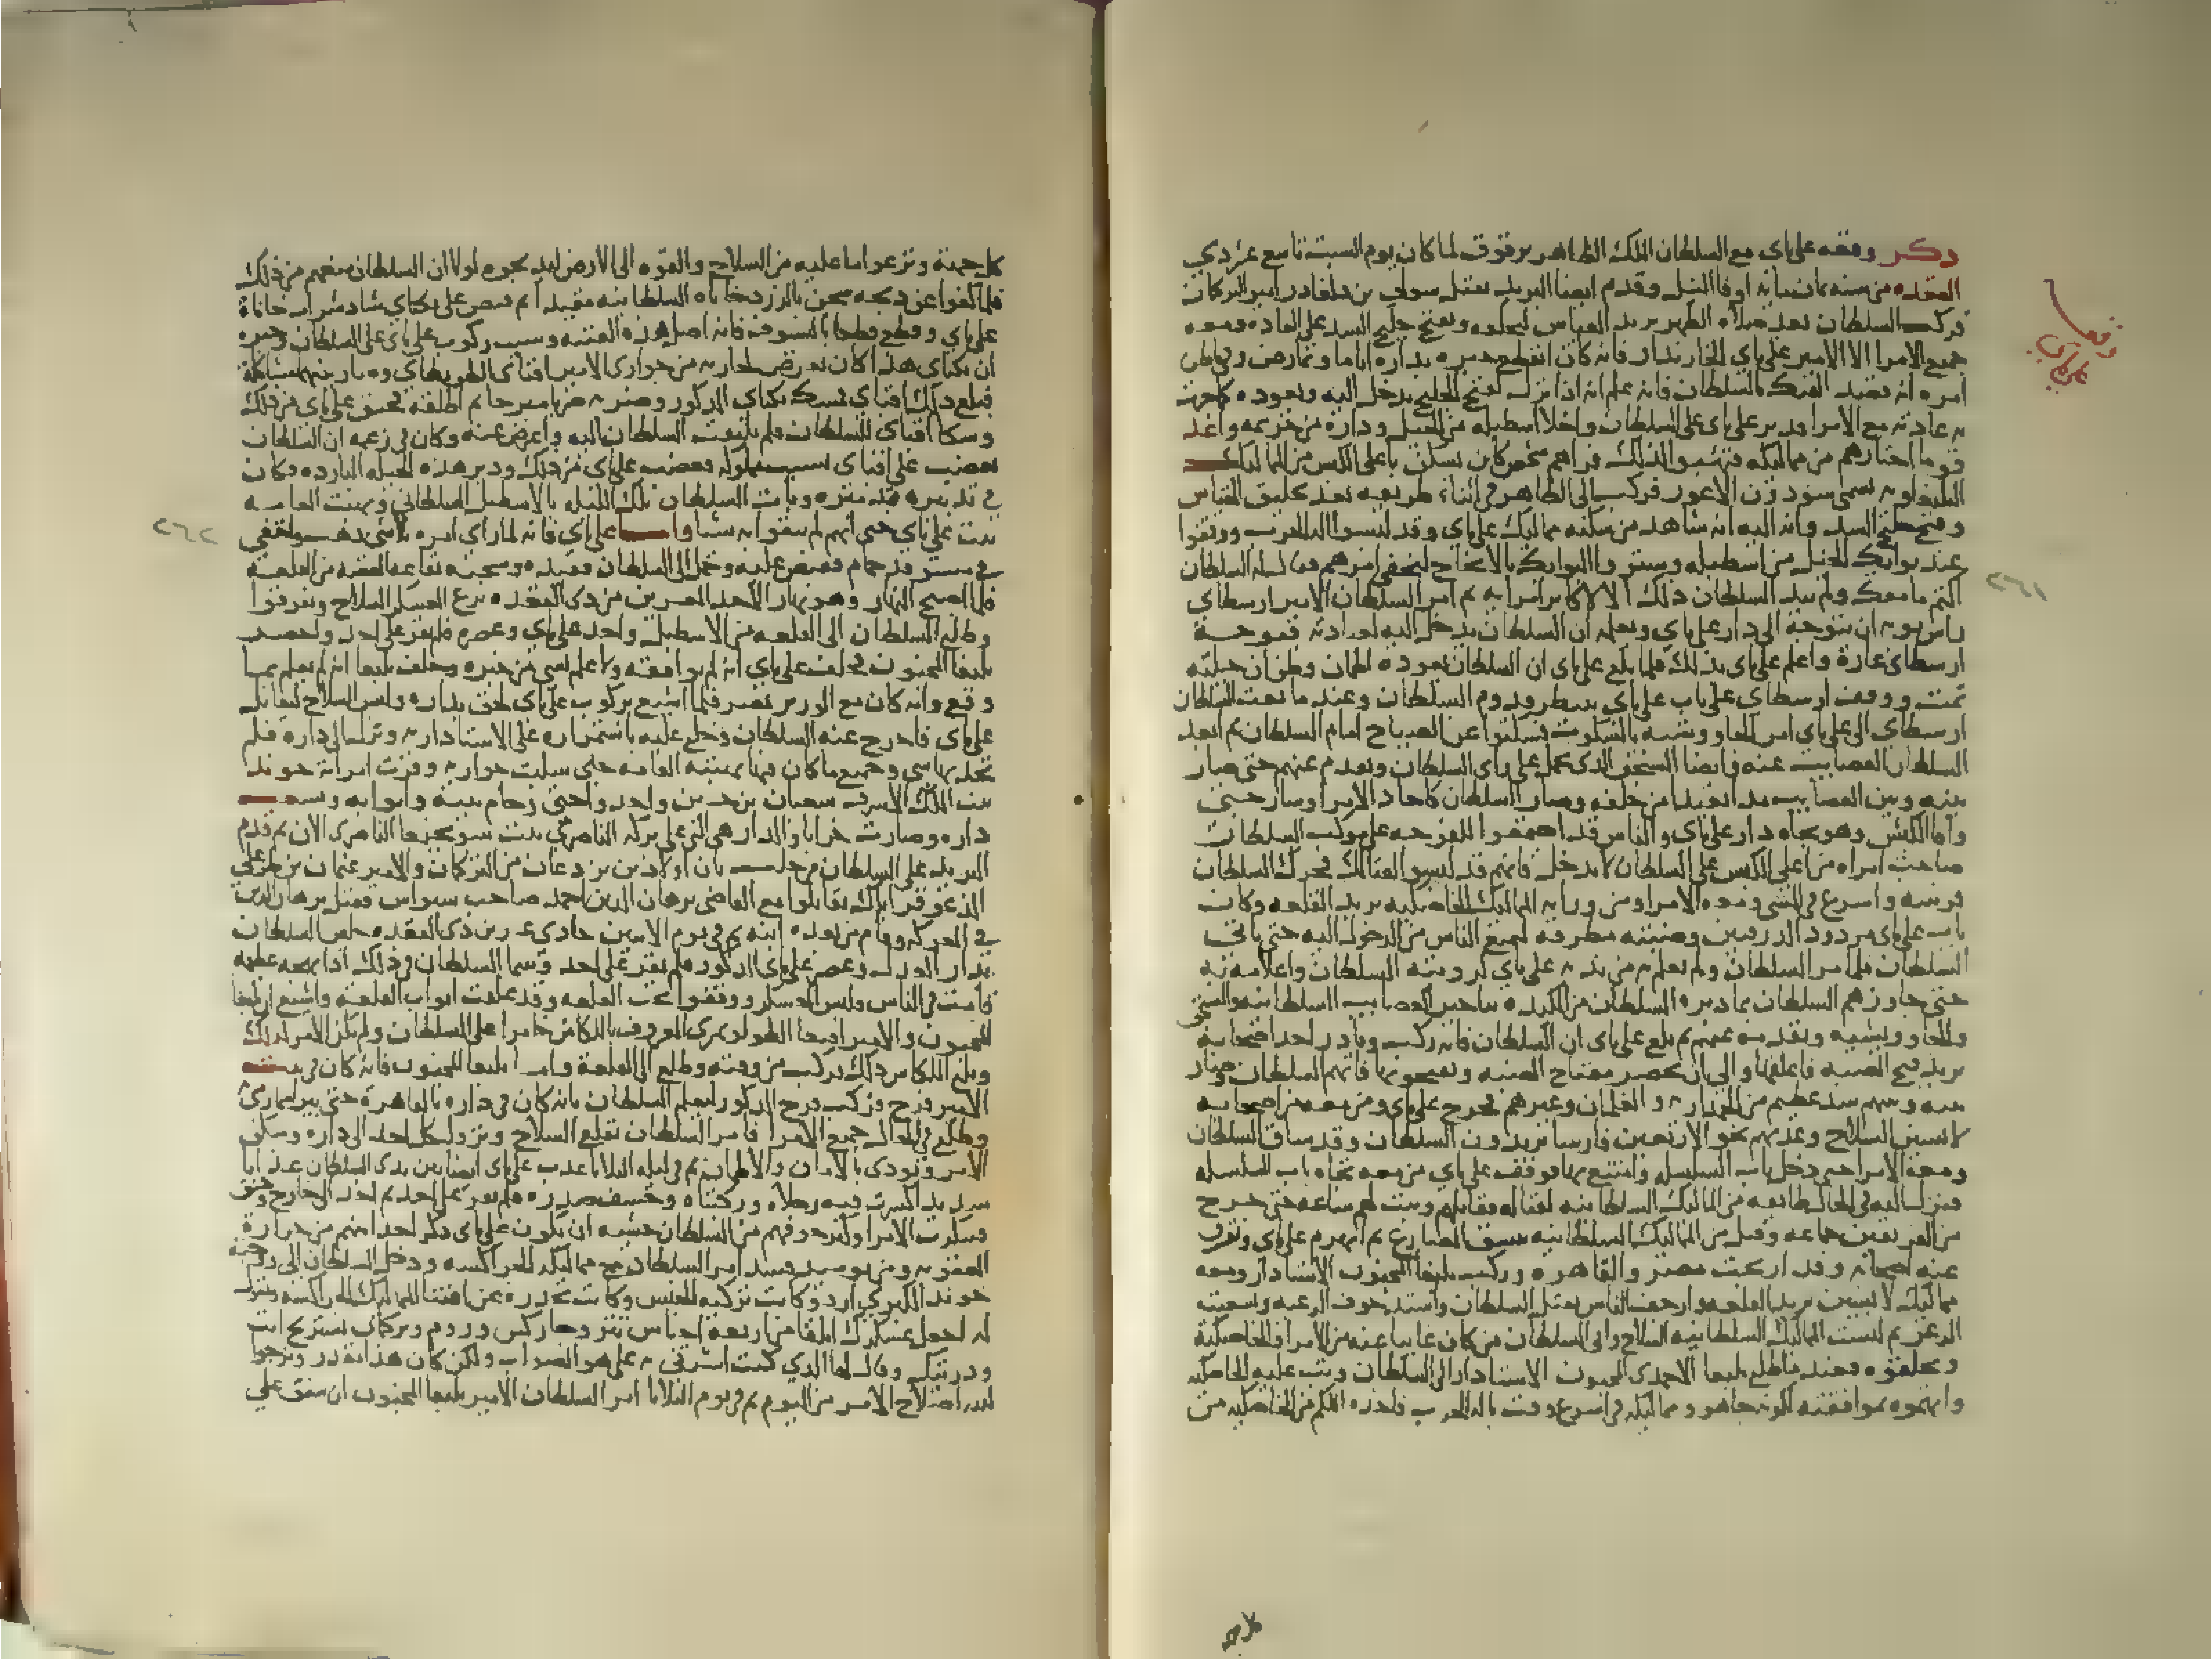 ذكر وقعة على باى مع السلطان الملك الظاهر برقوق لما كان يوم السبت تاسع عشر ذي
القعده من سنه ثمان مايه اوفا النيل وقدم ايضا البريد بقتل سولي بن دلغادر امير التركمان
فركب السلطان بعد صلاه الظهر يريد المقياس ليخلقه ويفتح خليج السد على العاده ومعه
جميع الامرا الا الامير على باي الخازندار فانه كان انقطع بداره اياما وتمارض وفي باطن
امره انه بقصد الفتك بالسلطان فانه علم انه اذا نزل لفتح الخليج يدخل اليه ويعوده كما جرت
به عادته مع الامرا فدبر على باى على السلطان واخلا اسطبله من الخيل وداره من حريمه واعد
قوما اختارهم من مماليكه فتهيوا لذلك فراهم شخص كان يسكن باعلى الكبش من المماليك
اليلبغاويه يسمى سودون الاعور فركب الى الظاهر في اثناء طريقه بعد تخليق المقياس
وفتح خليج السد وانه اليه انه شاهد من سكنه مماليك على باى وقد لبسوا اله الحرب ووقفوا
عند بوايك الخيل من اسطبله وستروا البوايك بالانخاخ ليخفى امرهم فقال له السلطان
اكتم ما معك ولم يبد السلطان ذلك الا لاكابر امرايه ثم امر السلطان الامير ارسطاي
راس نوبه ان يتوجه الى دار على باي ويعلمه ان السلطان يدخل اليه لعيادته فتوجه
ارسطاى عادة واعلم على باى بذلك فلما بلغ على باى ان السلطان يعوده اطمان وظن ان حيلته
تمت ووقف ارسطاى على باب على باى ينتظر قدوم السلطان وعند ما بعث السلطان
ارسطاى الى على باى امر الجاويشيه بالسكوت فسكتوا عن الصياح امام السلطان ثم ابعد
السلطان العصايب عنه وايضا السنجق الذى يحمل على راى السلطان وتقدم عنهم حتى صار
بينه وبين العصايب مدا بعيدا من خلفه وصار السلطان كاحاد الامرا وسار حتى
وافا الكبش وهو تجاه دار على باى والناس قد اجتمعوا للفرجه على موكب السلطان
صاحت امراه من اعلى الكبش على السلطان لا تدخل فانهم قد لبسوا لقتالك فحرك السلطان
فرسه واسرع في المشى ومعه الامرا ومن ورايه المماليك الخاصكيه يريد القلعه وكان
باب على باى مردود الدرفتين وضبته مطرفه ليمنع الناس من الدخول اليه حتى ياتى
السلطان فلما مر السلطان ولم يعلم به من ندبه على باي لرويته السلطان واعلامه به
حتى جاوزهم السلطان بما دبره السلطان من المكيده بتاخير العصايب السلطانيه والسنجق
والجاويشيه وتقدمه عنهم ثم بلغ على باى ان السلطان فاته ركب وبادر احد اصحابه
يريد فتح الضبه فاغلقها والى ان يحضر مفتاح الضبه ويفتحونها فاتهم السلطان وصار
بينه وبينهم سد عظيم من الجنداريه والغلمان وغيرهم فخرج على باى ومن معه من اصحابه
لابسين السلاح وعدتهم نحو الاربعين فارسا يريدون السلطان وقد ساق السلطان
ومعه الامرا حتى دخل باب السلسله وامتنع بها فوقف على باي من معه تجاه باب السلسله
فنزل اليه في الحال طايفه من المماليك السلطانيه لقتاله فقاتلهم وثبت لهم ساعه حتى جرح
من الفريقين جماعه وقتل من المماليك السلطانيه بيسق المصارع ثم انهزم على باى وتفرق
عنه اصحابه وقد ارتجت مصر والقاهره وركب يلبغا المجنون الاستادار ومعه
مماليك لابسين يريد القلعه وارجف الناس بقتل السلطان واشتد خوف الرعيه وتشعبت
الذعر ثم لبست المماليك السلطانيه السلاح واتى السلطان من كان غايبا عنه من الامرا والخاصكية
وتحلقوه فعند ما طلع يلبغا الاحمدى المجنون الاستادار الى السلطان وثب عليه الخاصكيه
واتهموه بموافقته لكونه جا هو ومماليكه في اسرع وقت باله الحرب فاخده اللكم من الخاصكيه من
كل جهة
كل جهة ونزعوا ما عليه من السلاح والقوه الى الارض ليذبحوه لولا ان السلطان منعهم من ذلك
فلما كفوا عن ذبحه سجن بالزردخاناه السلطانيه مقيدا ثم قبض على نكباي شاد شراب خاناه
على باي وقطع قطعا بالسيوف فانه اصل هذه الفتنه وسبب ركوب على باى على السلطان وخبره
ان نكباى هذا كان تعرض لجاريه من جوارى الامير اقباى الطرنطاي وصار بينهما مشاكلة
فبلغ ذلك اقباي فمسك نكباي المذكور وضربه ضربا مبرحا ثم اطلقه فحنق على باى من ذلك
وشكا اقباى للسلطان فلم يلتفت السلطان اليه واعرض عنه وكان في زعمه ان السلطان
يغضب على اقباى بسبب مملوكه فغضب على باى من ذلك ودبر هذه الحيله البارده فكان
في تدبيره تدميره وبات السلطان تلك الليله بالاسطبل السلطاني ونهبت العامه
بيت على باي حتى انهم لم يبقوا به شيا واما على باي فانه لما راى امره تلاشى ذهب واختفى
في مستوقد حمام فقبض عليه وحمل الى السلطان فقيده وسجنه بقاعه الفضه من القلعة
فلما اصبح النهار وهو نهار الاحد العشرين من ذى القعده نزع العسكر السلاح وتفرقوا
وطلع السلطان الى القلعه من الاسطبل واخذ على باي وعصره فلم يقر على احد واحضر
يلبغا المجنون فحلف على باي انه لم يوافقه ولا علم بشى من خبره وحلف يلبغا انه لم يعلم بما
وقع وانه كان مع الوزير بمصر فلما اشيع بركوب على باى لحق بداره ولبس السلاح ليقاتل
على باى فافرج عنه السلطان وخلع عليه باستمراره على الاستاداريه ونزل الى داره فلم
يجد بها شى وجميع ما كان فيها نهبته العامه حتى سلبت جواره وفرت امراته خوند
بنت الملك الاشرف شعبان بن حسين واخذوا حتى رخام بيته وابوابه وتشعث
داره وصارت خرابا والدار هي التي على بركه الناصرى بيت سونجبغا الناصرى الان ثم قدم
البريد على السلطان من حلب بان اولاد بن بزدغان من التركمان والامير عثمان بن طرعلى
المدعو قرايلك تقاتلوا مع القاضى برهان الدين احمد صاحب سيواس فقتل برهان الدين
في المعركه وقام من بعده ابنه ثم في يوم الاثنين حادي عشرين ذى القعده جلس السلطان
بدار العدل وعصر على باى المذكور فلم يقر على احد وبينما السلطان في ذلك اذا بهجه عظيمه
قامت في الناس ولبس العسكر ووقفوا تحت القلعه وقد غلقت ابواب القلعة واشيع ان يلبغا
المجنون والامير اقبغا الطولوتمرى المعروف باللكاش خامرا على السلطان ولم يكن الامر كذلك
وبلغ اللكاش ذلك فركب من وقته وطلع الى القلعة واما يلبغا المجنون فانه كان في بيت
الامير فرج فركب فرج المذكور ليعلم السلطان بانه كان في داره بالقاهرة حتى يبرا مما رمى
وطلع في الحال جميع الامرا فامر السلطان بقلع السلاح ونزول كل احد الى داره وسكن
الامر ونودى بالامان والاطمان ثم في ليله الثلاثا عذب على باى ايضا بين يدى السلطان عذابا
شديدا كسرت فيه رجلاه وركبتاه وخسف صدره فلم يقر على احد ثم اخذ الى خارج وخنق
وسكنت الامرا وكثر خوفهم من السلطان خشيه ان يكون على باى ذكر احدا منهم من حرارة
العقوبه ومن يوميذ فسد امر السلطان مع مماليكه الجراكسه ودخل السلطان الى زوجته
خوند الكبري ارد وكانت تركيه الجنس وكانت تحذره عن اقتنا المماليك الجراكسه وتقول
له اجعل عسكرك ابلقا من اربعة اجناس تتر وجاركس وروم وتركمان تستريح انت
وذريتك وقال لها الذي كنت اشرتى به على هو الصواب ولكن كان هذا مقدر ونرجوا
الله اصلاح الامر من اليوم ثم في يوم الثلاثا امر السلطان الامير يلبغا المجنون ان ينفق علي
وقعة
على باى
٢٦١
٢٦٢